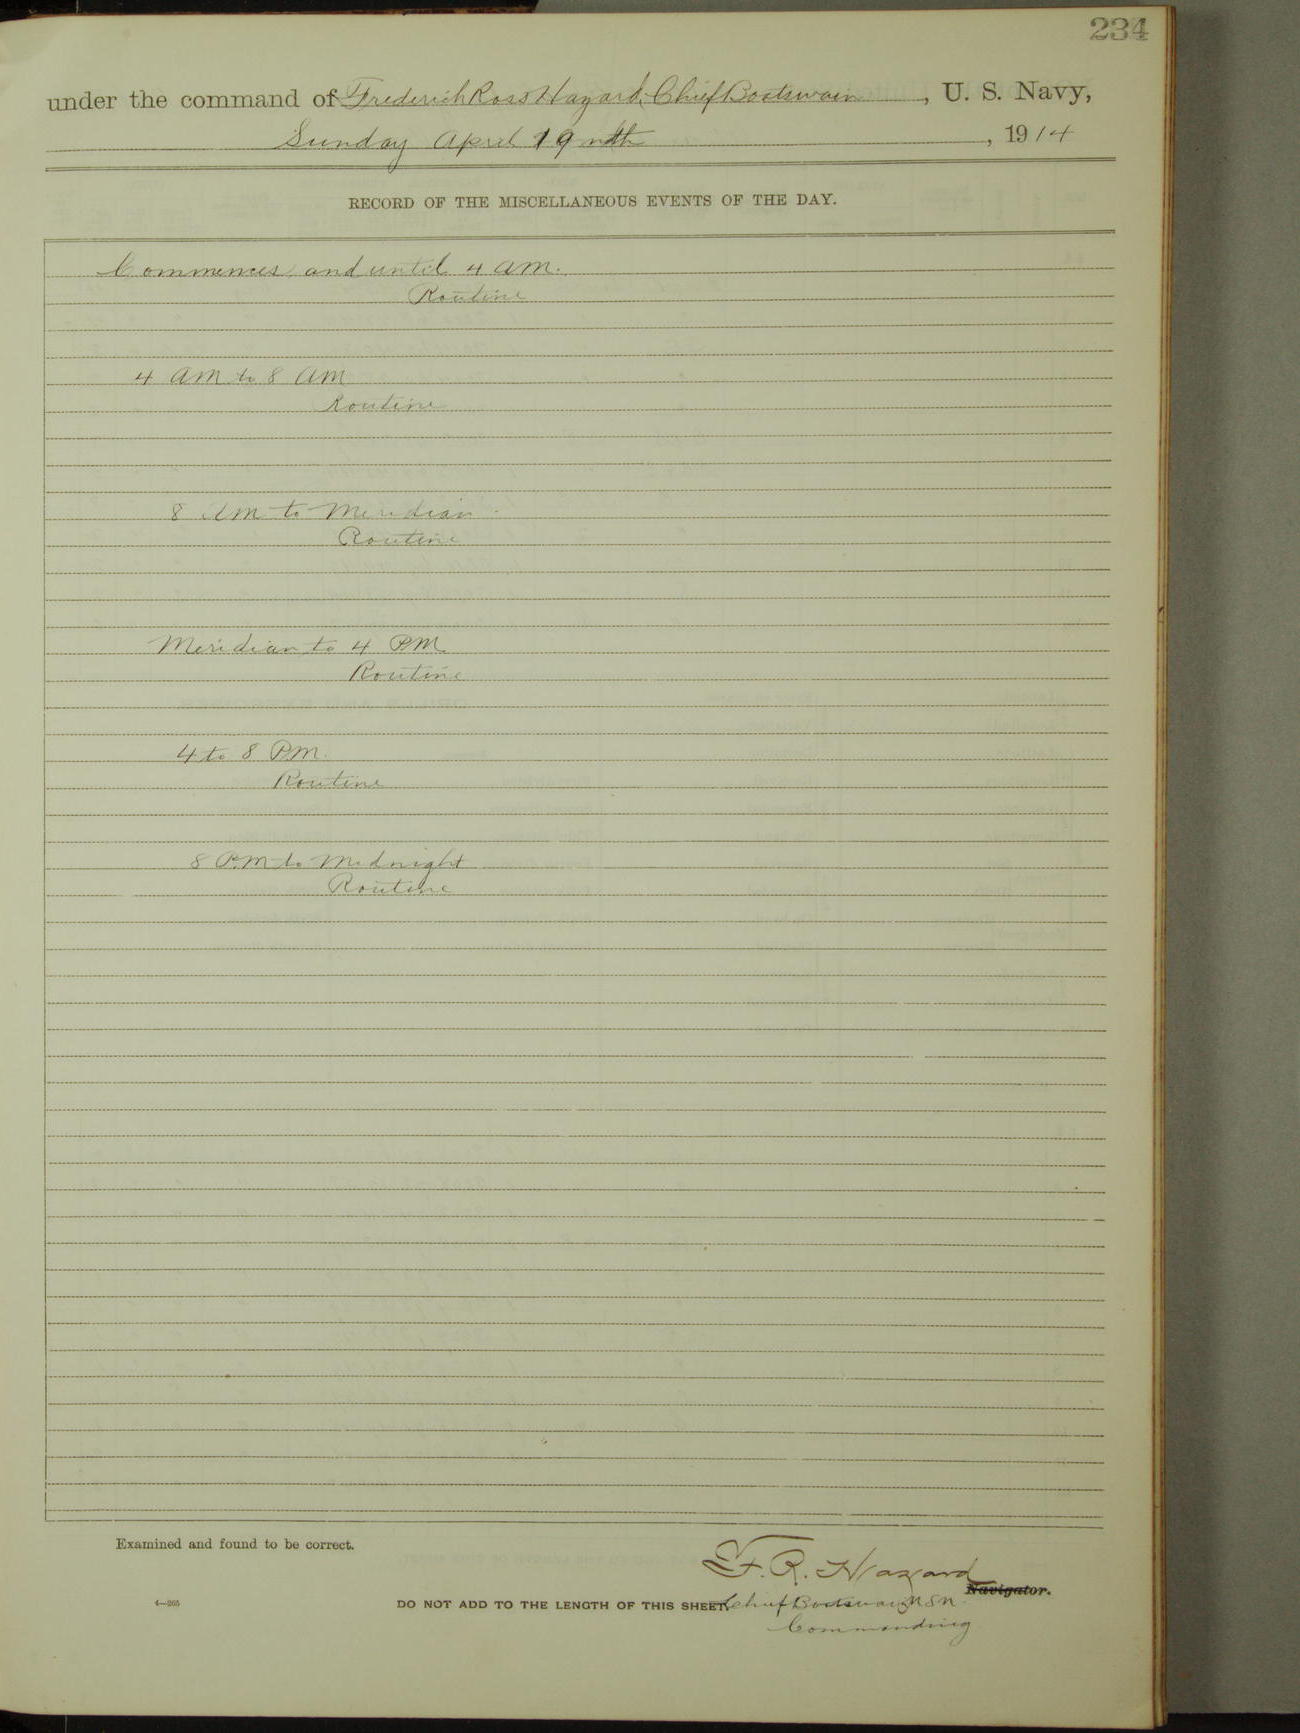 234
under the command of Frederich Ross Hazard, Chief Boatswain, U. S. Navy,
Sunday April 19 nth, 1914
RECORD OF THE MISCELLANEOUS EVENTS OF THE DAY.
Commences and until 4 am.
Routine
4 am to 8 am
Routine
8 Am to Meridian
Routine
Meridian to 4 PM
Routine
4 to 8 PM.
Routine
8 PM to Midnight
Routine
Examined and found to be correct.
F. R. Hazard
Navigator.
4—265
DO NOT ADD TO THE LENGTH OF THIS SHEET. Chief Boatswain USN.
Commanding